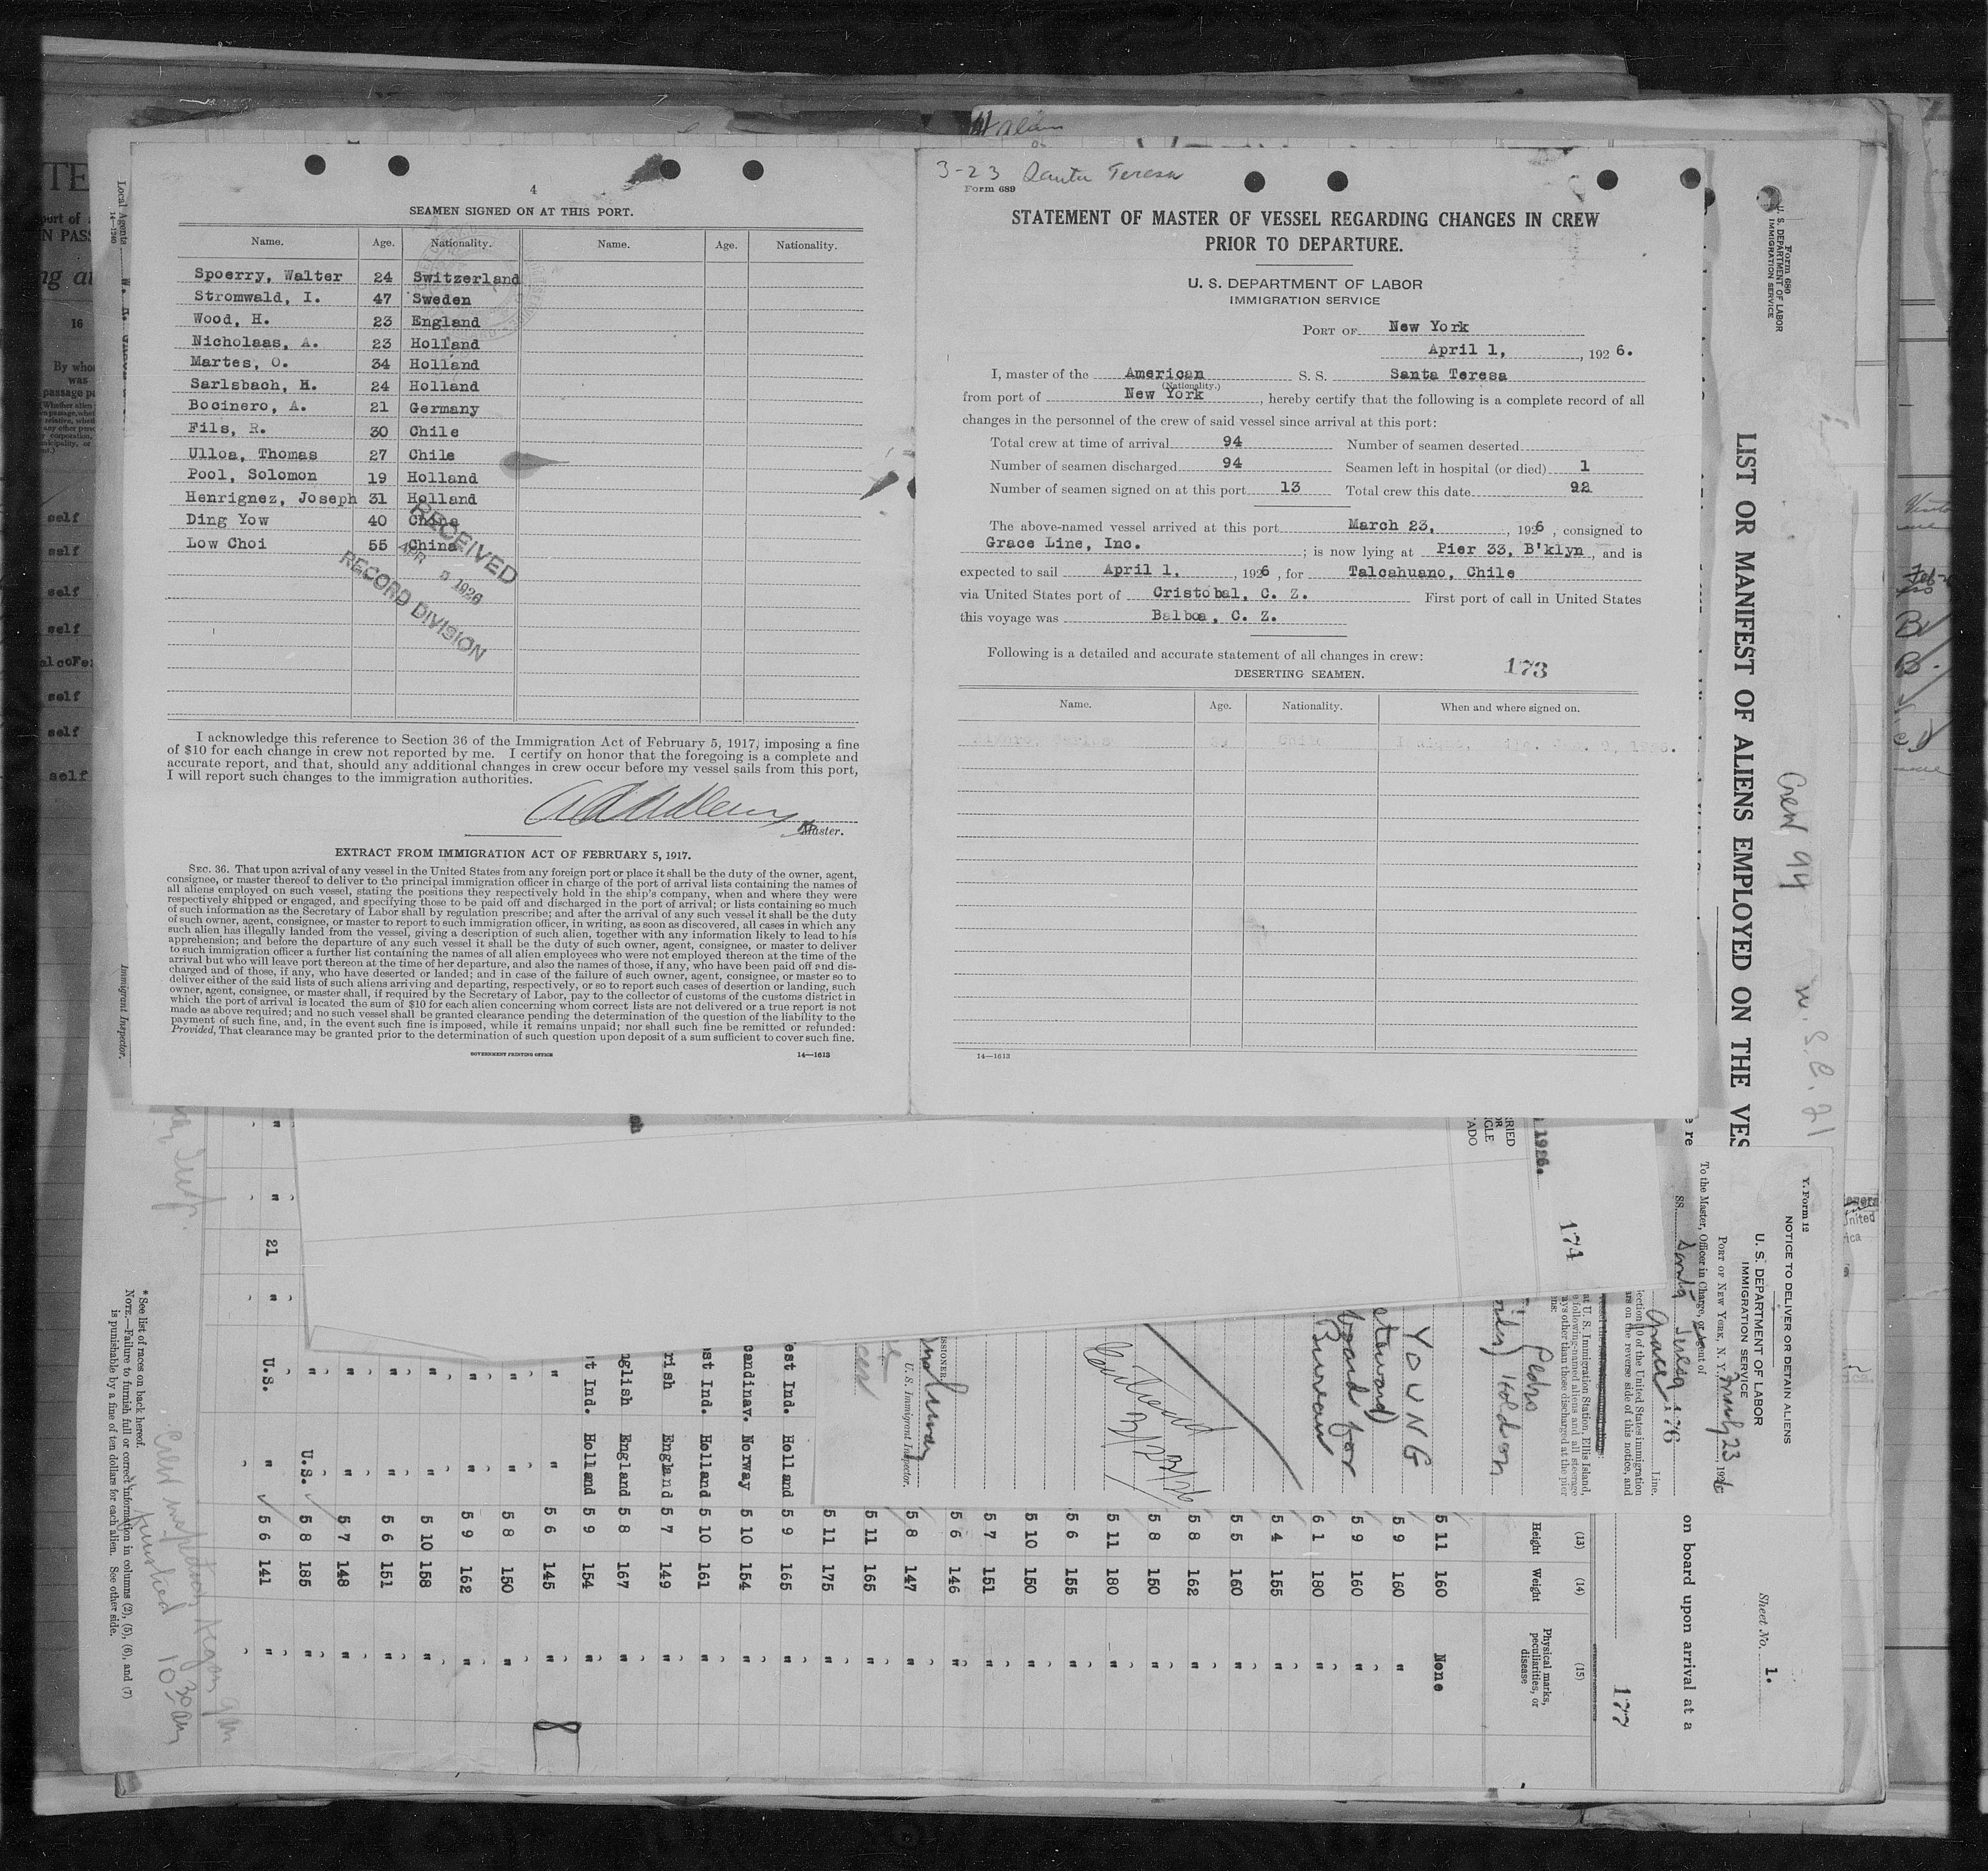 4
SEAMEN SIGNED ON AT THIS PORT.
Name. Age. Nationality. Name. Age. Nationality.
Spoerry, Walter 24 Switzerland
Stromwald, I. 47 Sweden
Wood, H. 23 England
Nicholaas, A. 23 Holland
Martes, O. 34 Holland
Sarlsbach, H. 24 Holland
Bocinero, A. 21 Germany
Fils, R. 30 Chile
Ulloa, Thomas 27 Chile
Pool, Solomon 19 Holland
Henrignez, Joseph 31 Holland
Ding Yow 40 China
Low Choi 55 China
RECEIVED
APR 5 1926
RECORD DIVISION
I acknowledge this reference to Section 36 of the Immigration Act of February 5, 1917, imposing a fine
of $10 for each change in crew not reported by me. I certify on honor that the foregoing is a complete and
accurate report, and that, should any additional changes in crew occur before my vessel sails from this port,
I will report such changes to the immigration authorities.
Master.
EXTRACT FROM IMMIGRATION ACT OF FEBRUARY 5, 1917.
SEC. 36. That upon arrival of any vessel in the United States from any foreign port or place it shall be the duty of the owner, agent,
consignee, or master thereof to deliver to the principal immigration officer in charge of the port of arrival lists containing the names of
all aliens employed on such vessel, stating the positions they respectively hold in the ship's company, when and where they were
respectively shipped or engaged, and specifying those to be paid off and discharged in the port of arrival; or lists containing so much
of such information as the Secretary of Labor shall by regulation prescribe; and after the arrival of any such vessel it shall be the duty
of such owner, agent, consignee, or master to report to such immigration officer, in writing, as soon as discovered, all cases in which any
such alien has illegally landed from the vessel, giving a description of such alien, together with any information likely to lead to his
apprehension; and before the departure of any such vessel it shall be the duty of such owner, agent, consignee, or master to deliver
to such immigration officer a further list containing the names of all alien employees who were not employed thereon at the time of the
arrival but who will leave port thereon at the time of her departure, and also the names of those, if any, who have been paid off and dis-
charged and of those, if any, who have deserted or landed; and in case of the failure of such owner, agent, consignee, or master so to
deliver either of the said lists of such aliens arriving and departing, respectively, or so to report such cases of desertion or landing, such
owner, agent, consignee, or master shall, if required by the Secretary of Labor, pay to the collector of customs of the customs district in
which the port of arrival is located the sum of $10 for each alien concerning whom correct lists are not delivered or a true report is not
made as above required; and no such vessel shall be granted clearance pending the determination of the question of the liability to the
payment of such fine, and, in the event such fine is imposed, while it remains unpaid; nor shall such fine be remitted or refunded:
Provided, That clearance may be granted prior to the determination of such question upon deposit of a sum sufficient to cover such fine.
GOVERNMENT PRINTING OFFICE 14—1613
3-23 Santa Teresa
Form 689
STATEMENT OF MASTER OF VESSEL REGARDING CHANGES IN CREW
PRIOR TO DEPARTURE.
U. S. DEPARTMENT OF LABOR
IMMIGRATION SERVICE
PORT OF New York
April 1, , 192 6.
I, master of the American S. S. Santa Teresa
(Nationality.)
from port of New York , hereby certify that the following is a complete record of all
changes in the personnel of the crew of said vessel since arrival at this port:
Total crew at time of arrival 94 Number of seamen deserted
Number of seamen discharged 94 Seamen left in hospital (or died) 1
Number of seamen signed on at this port 13 Total crew this date 92
The above-named vessel arrived at this port March 23, , 1926 , consigned to
Grace Line, Inc. ; is now lying at Pier 33, B'klyn , and is
expected to sail April 1, , 1926 , for Talcahuano, Chile
via United States port of Cristobal, C. Z. First port of call in United States
this voyage was Balboa, C. Z.
Following is a detailed and accurate statement of all changes in crew:
173
DESERTING SEAMEN.
Name. Age. Nationality. When and where signed on.
14—1613
Form 680
U. S. DEPARTMENT OF LABOR
IMMIGRATION SERVICE
LIST OR MANIFEST OF ALIENS EMPLOYED ON THE VES
Crew 94
Sheet No. 1.
on board upon arrival at a
177
Y. Form 12
NOTICE TO DELIVER OR DETAIN ALIENS
U. S. DEPARTMENT OF LABOR
IMMIGRATION SERVICE
PORT OF NEW YORK, N. Y. March 23 1926
To the Master, Officer in Charge, or Agent of
SS. Santa Teresa
Grace Line.
176
174
1926.
Pedro
Holdson
YOUNG
steward
board for
Bureau
U. S. Immigrant Inspector.
(13) (14) (15)
Height Weight Physical marks, peculiarities, or disease
5 11 160 None
5 9 160 "
5 9 160 "
6 1 180 "
5 4 155 "
5 5 160 "
5 8 162 "
5 8 150 "
5 11 180 "
5 6 155 "
5 10 150 "
5 7 151 "
5 6 146 "
5 8 147 "
5 11 165 "
5 11 175 "
est Ind. Holland 5 9 165 "
candinav. Norway 5 10 154 "
st Ind. Holland 5 10 161 "
rish England 5 7 149 "
nglish England 5 8 167 "
t Ind. Holland 5 9 154 "
" " 5 6 145 "
" " 5 8 150 "
" " 5 9 162 "
" " 5 10 158 "
" " 5 6 151 "
" " 5 7 148 "
" U.S. 5 8 185 "
21 U.S. " 5 6 141 "
* See list of races on back hereof.
NOTE.—Failure to furnish full or correct information in columns (2), (5), (6), and (7)
is punishable by a fine of ten dollars for each alien. See other side.
Crew inspection began
finished 10 30 am
Local Agents
14—1240
Immigrant Inspector.
16
By whom
was
passage pa
self
self
self
self
self
self
self